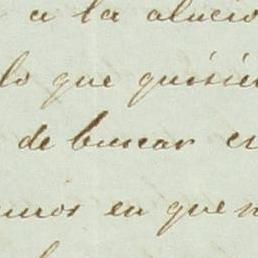 a la aluci
lo que quisie
de buscar en
mos en que n